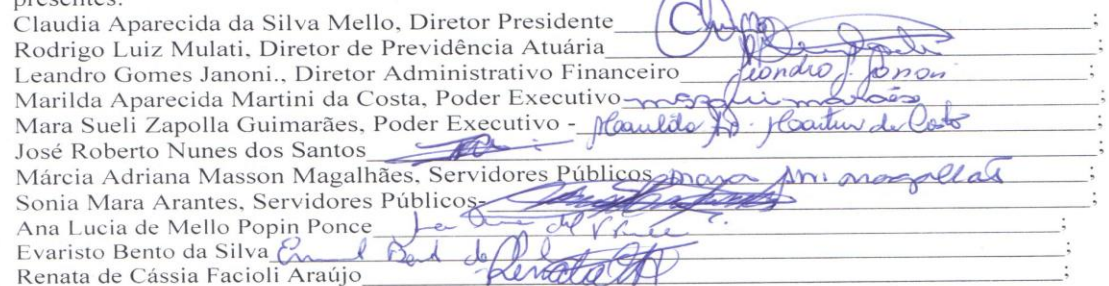 presentes:
Claudia Aparecida da Silva Mello, Diretor Presidente ;
Rodrigo Luiz Mulati, Diretor de Previdência Atuária ;
Leandro Gomes Janoni., Diretor Administrativo Financeiro Leandro J. Janoni ;
Marilda Aparecida Martini da Costa, Poder Executivo ;
Mara Sueli Zapolla Guimarães, Poder Executivo - Marilda Ap. Martini da Costa ;
José Roberto Nunes dos Santos ;
Márcia Adriana Masson Magalhães, Servidores Públicos ;
Sonia Mara Arantes, Servidores Públicos- ;
Ana Lucia de Mello Popin Ponce ;
Evaristo Bento da Silva ;
Renata de Cássia Facioli Araújo Renata ;